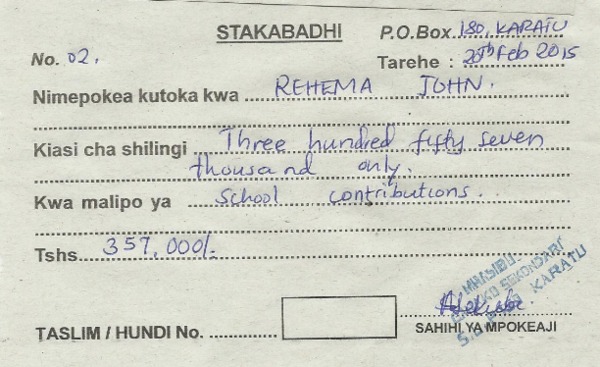 STAKABADHI P.O.Box 180, KARATU
No. 02. Tarehe : 20th Feb 2015
Nimepokea kutoka kwa REHEMA JOHN.
Kiasi cha shilingi Three hundred fifty seven
thousand only.
Kwa malipo ya School contributions.
Tshs. 357,000/-
MHASIBU
SEKONDARI
KARATU
TASLIM / HUNDI No. SAHIHI YA MPOKEAJI